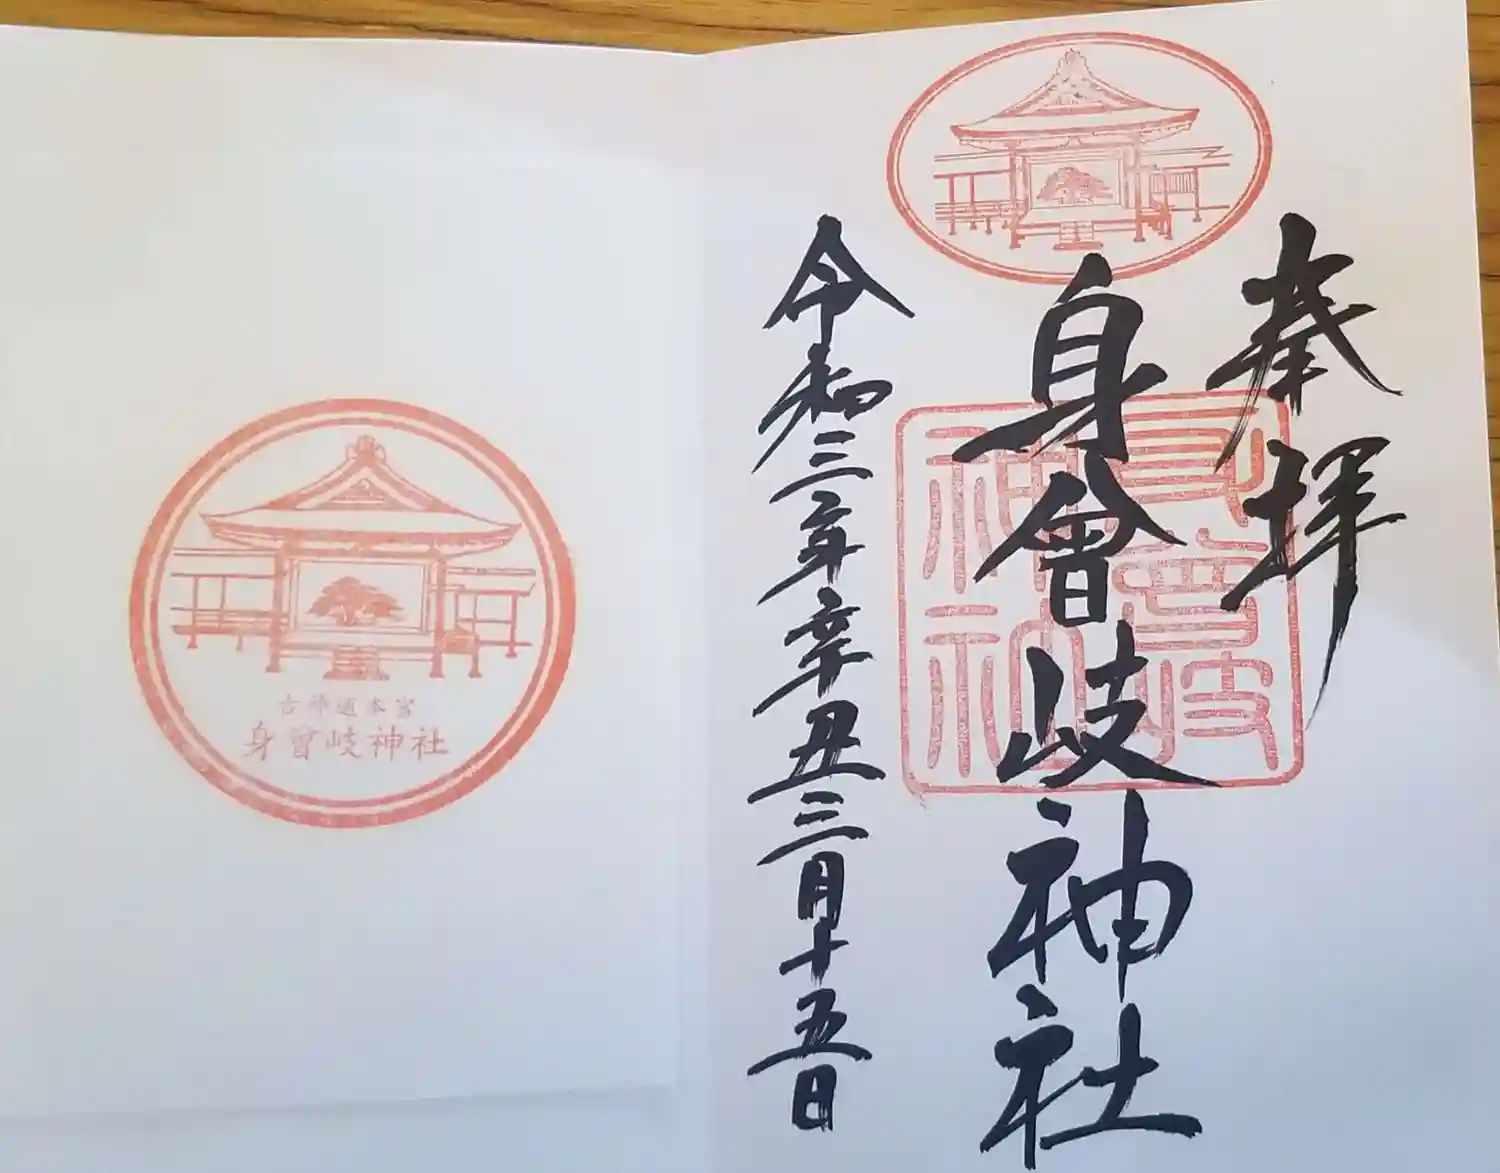 奉拝
身曾岐神社
身曾岐
神社
令和三年辛丑三月十五日
古神道本宮
身曾岐神社